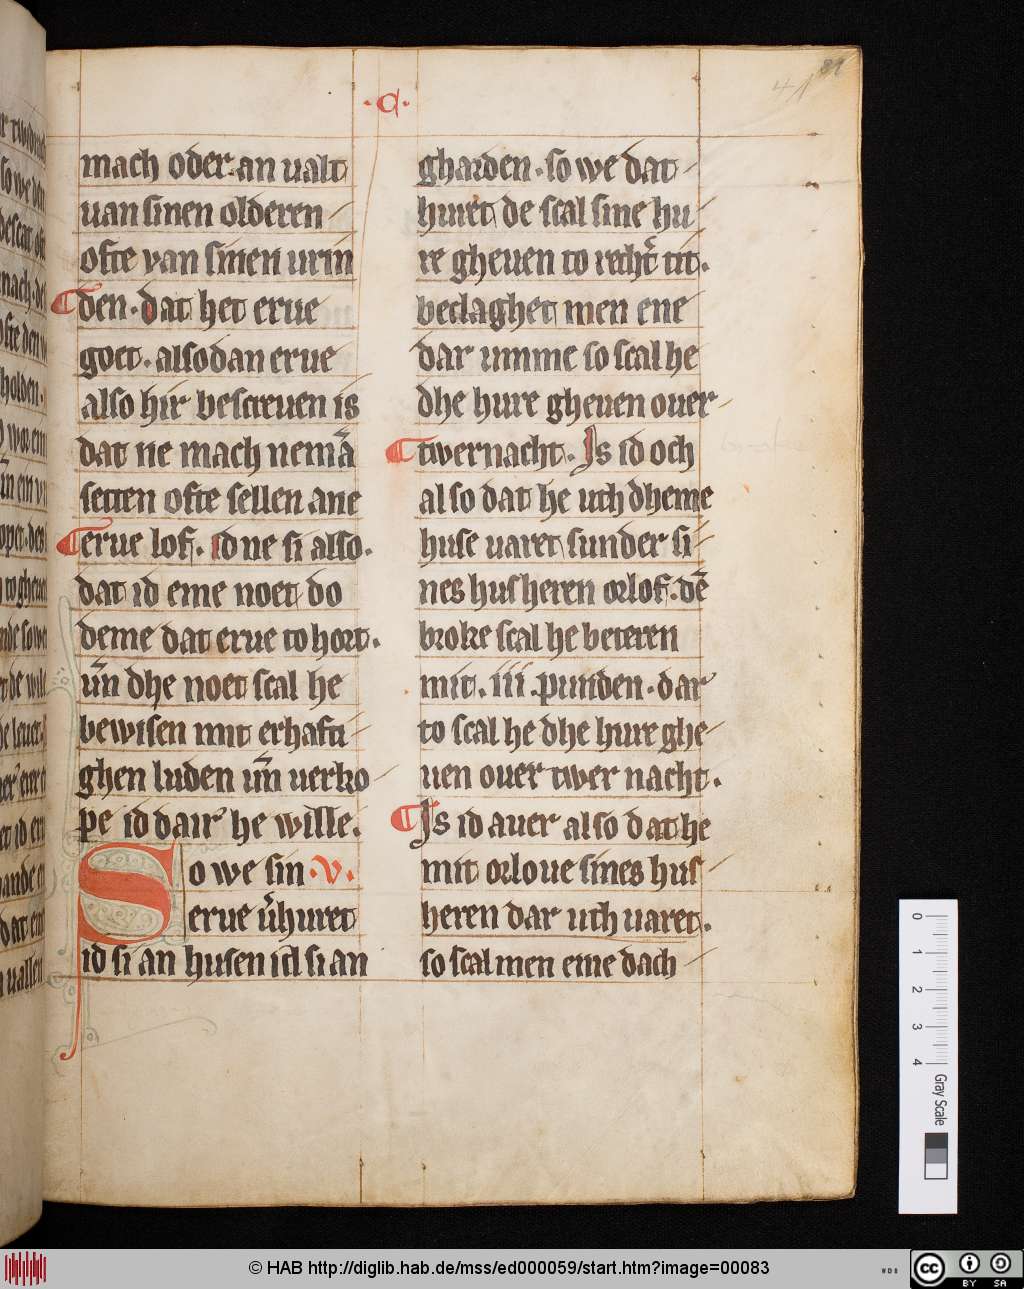 ·C·
41
mach oder an ualt
uan sinen olderen
ofte van sinen urin
den · dat het erue
goet · alsodan erue
also hir bescreuen is
dat ne mach nemā
setten ofte sellen ane
erue lof · id ne si also ·
dat id eme noet do
deme dat erue to hort ·
un̄ dhe noet scal he
bewisen mit erhafti
ghen luden un̄ uerko
pe id dair he wille ·
So we sin · v ·
erue v̄huret
id si an husen id si an
gharden · so we dat
huret de scal sine hu
re gheuen to recht tit ·
beclaghet men ene
dar umme so scal he
dhe hure gheuen ouer
twernacht · Js id och
also dat he uth dheme
huse uaret sunder si
nes husheren orlof · dē
broke scal he beteren
mit · iii · punden · dar
to scal he dhe hure ghe
uen ouer twer nacht ·
Js id auer also dat he
mit orloue sines hus
heren dar uth uaret ·
so scal men eme dach
0 1 2 3 4
Gray Scale
© HAB http://diglib.hab.de/mss/ed000059/start.htm?image=00083
cc BY SA